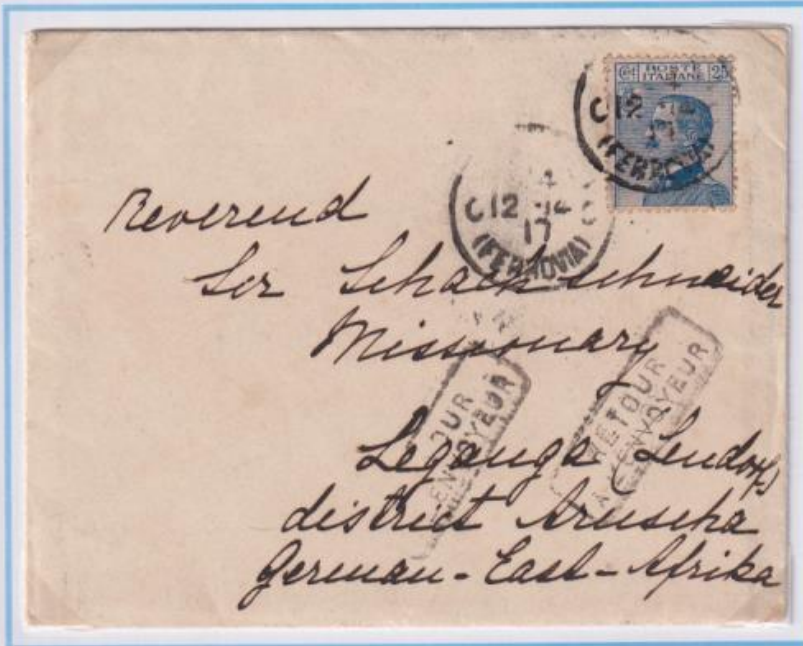 Cet POSTE 25
ITALIANE
12
17
(FERROVIA)
4
12 12
17
(FERROVIA)
Reverend
Ser Schachschneider
Missionary
RETOUR
À L'ENVOYEUR
OUR
ENVOYEUR
Leganga Lendorf
district Aruscha
German-East-Afrika